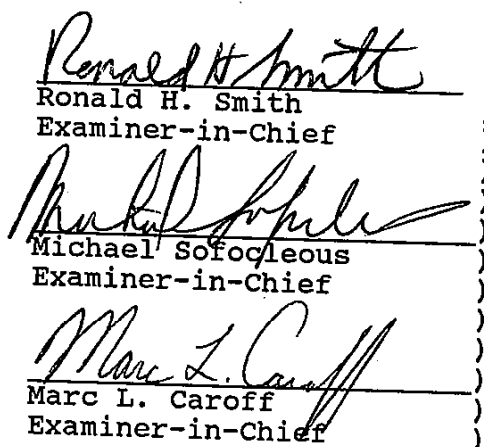 Ronald H Smith
Ronald H. Smith
Examiner-in-Chief
Michael Sofocleous
Examiner-in-Chief
Marc L. Caroff
Marc L. Caroff
Examiner-in-Chief